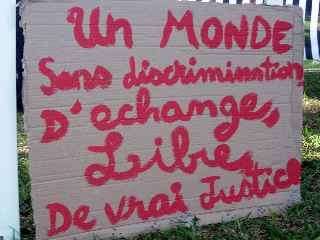 Un MONDE
Sans discrimination
D'echange,
Libre,
De vrai Justice